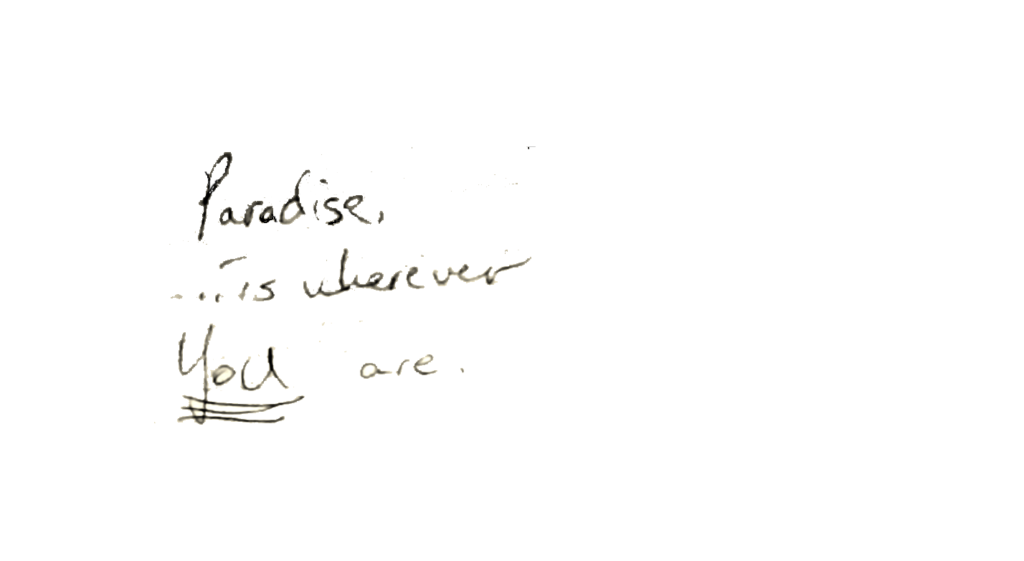 Paradise.
...is wherever
You are.